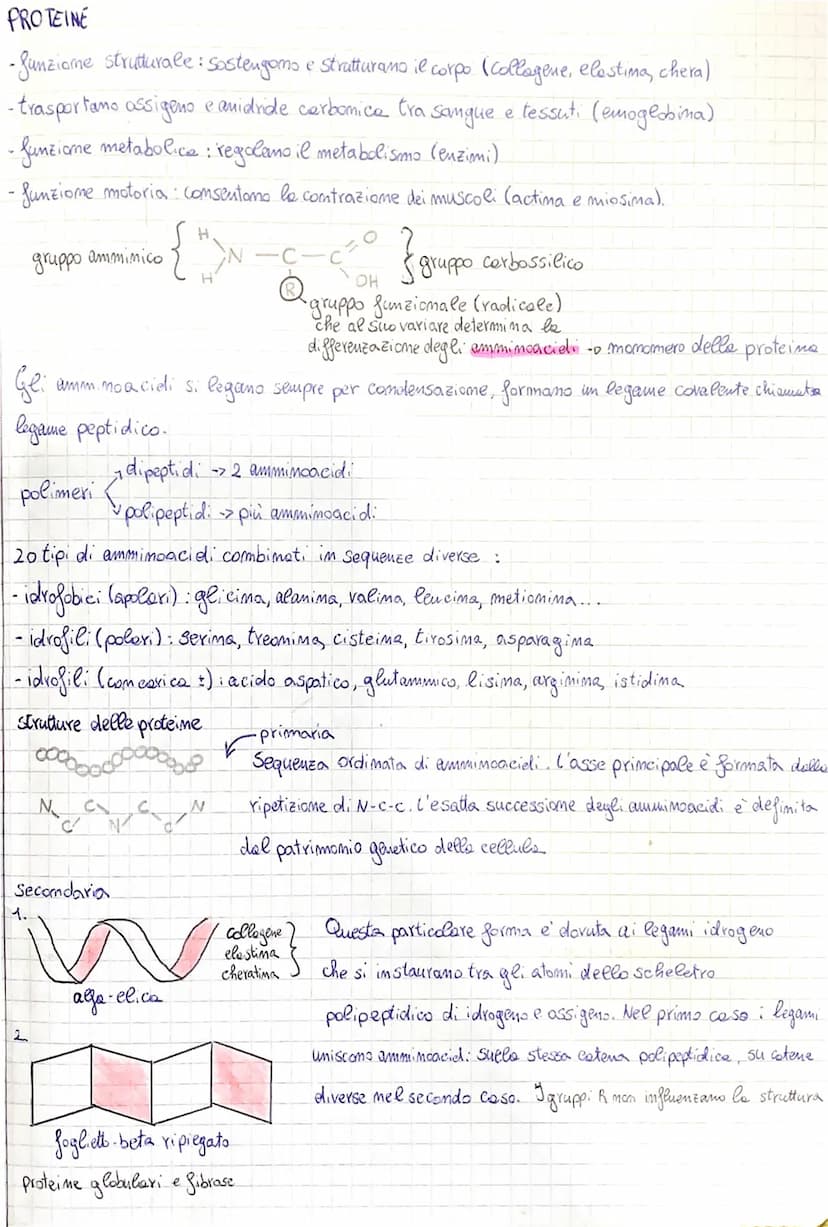 PROTEINE
- funzione strutturale: sostengono e strutturano il corpo (collagene, elastina, chera)
- trasportano ossigeno e anidride carbonica tra sangue e tessuti (emoglobina)
- funzione metabolica: regolano il metabolismo (enzimi)
- funzione motoria: consentono la contrazione dei muscoli (actina e miosina).
gruppo amminico { H H N - C - C O OH } gruppo carbossilico
R gruppo funzionale (radicale)
che al suo variare determina la
differenzazione degli amminoacidi → monomero delle proteine
Gli amminoacidi si legano sempre per condensazione, formano un legame covalente chiamato
legame peptidico.
polimeri
dipeptidi -> 2 amminoacidi
polipeptidi -> più amminoacidi
20 tipi di amminoacidi combinati in sequenze diverse :
- idrofobici (apolari) : glicina, alanina, valina, leucina, metionina...
- idrofili (polari) : serina, treonina, cisteina, tirosina, asparagina
- idrofili (con carica ±) : acido aspatico, glutammico, lisina, arginina, istidina
strutture delle proteine
primaria
Sequenza ordinata di amminoacidi. L'asse principale è formata dalla
N C C N C C N
ripetizione di N-C-C. L'esatta successione degli amminoacidi è definita
dal patrimonio genetico della cellula
Secondaria
1.
collagene
elastina
cheratina
alfa-elica
Questa particolare forma e' dovuta ai legami idrogeno
che si instaurano tra gli atomi dello scheletro
polipeptidico di idrogeno e ossigeno. Nel primo caso i legami
uniscono amminoacidi sulla stessa catena polipeptidica, su catene
diverse nel secondo caso. I gruppi R non influenzano la struttura
2
foglietto-beta ripiegato
proteine globulari e fibrose